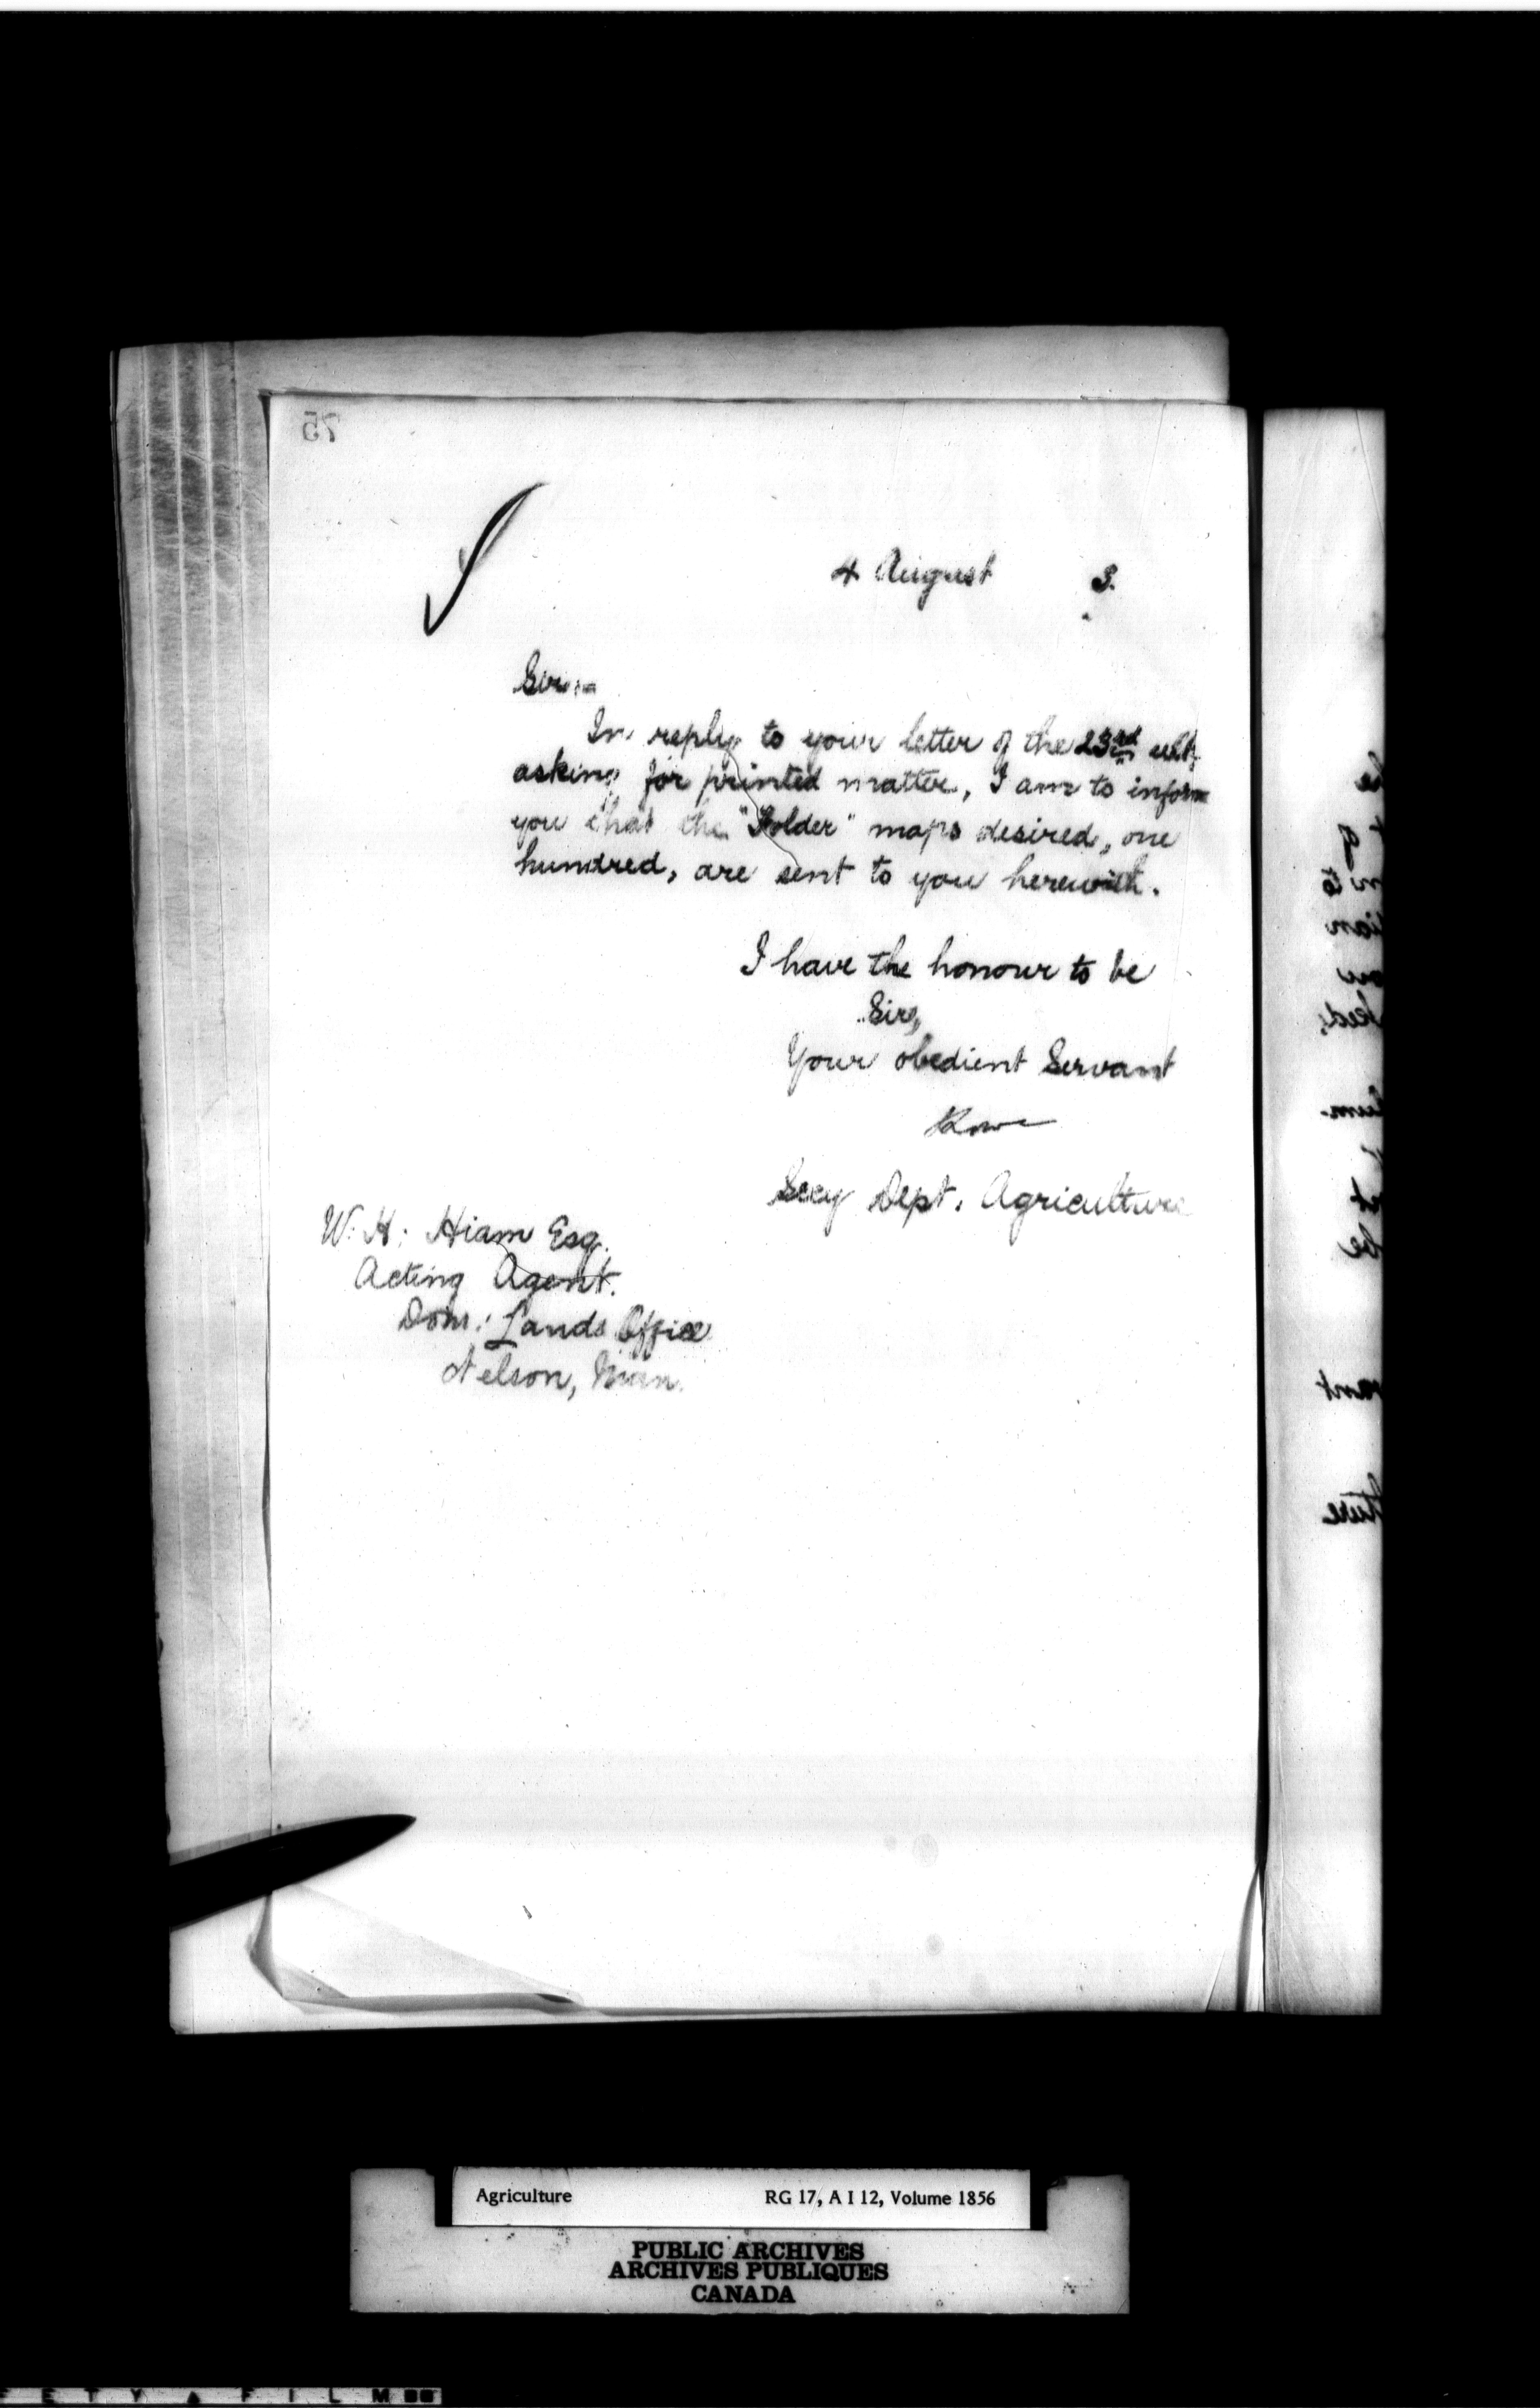 75
4 August 3.
Sir:-
In reply to your letter of the 23rd ult,
asking for printed matter, I am to inform
you that the "Folder" maps desired, one
hundred, are sent to you herewith.
I have the honour to be
Sir,
Your obedient Servant
Secy Dept. Agriculture
W. H. Hiam Esq.
Acting Agent.
Dom: Lands Office
Nelson, Man.
Agriculture RG 17, A I 12, Volume 1856
PUBLIC ARCHIVES
ARCHIVES PUBLIQUES
CANADA